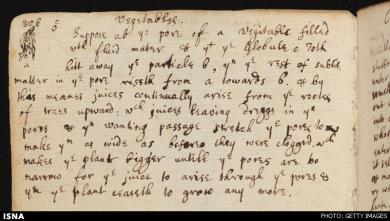 Vegetables.
Suppose ab yᵉ pore of a Vegetable filled
wᵗʰ fluid mater & yᵗ yᵉ Globule c doth
hitt away yᵉ particle b, yⁿ yᵉ rest of subtle
matter in yᵉ pore riseth from a towards b. & by
this meanes juices continually arise from yᵉ rootes
of trees upward: wᶜʰ juices leaving dreggs in yᵉ
pores & yⁿ wanting passage stretch yᵉ pores to
make yᵐ as wide as before they were clogged. wᶜʰ
makes yᵉ plant bigger untill yᵉ pores are too
narrow for yᵉ juice to arise through yᵉ pores &
yⁿ yᵉ plant ceaseth to grow any more.
ISNA
PHOTO: GETTY IMAGES